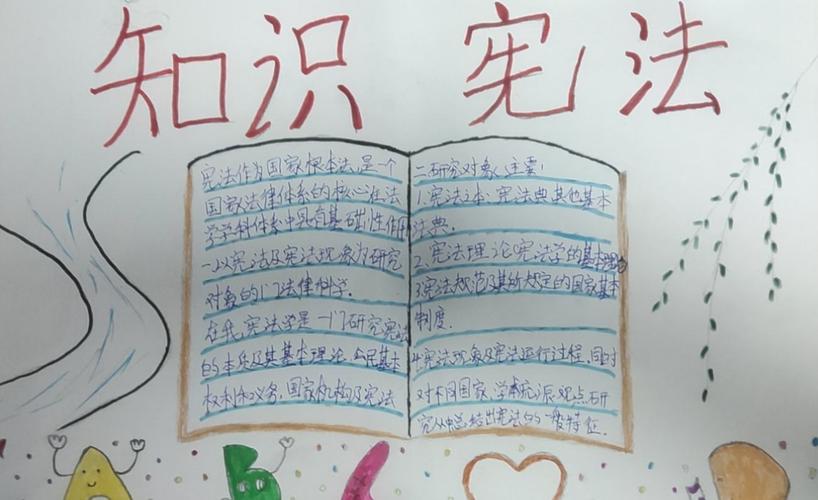 知识 宪法
宪法作为国家根本法,是一个
国家法律体系的核心在法
学学科体系中具有基础性作用
一以宪法及宪法现象为研究
对象的门法律科学.
在我,宪法学是一门研究宪法
的本质及其基本理论、公民基本
权利和义务,国家机构及宪法
二研究对象,主要:
1.宪法文本.宪法典其他基本
法典.
2.宪法理论宪法学的基本理论
3宪法规范及其所规定的国家基本
制度.
4.宪法现象及宪法运行过程,同时
对不同国家,学术流派.观点研
究从中总结出宪法的一般特征.